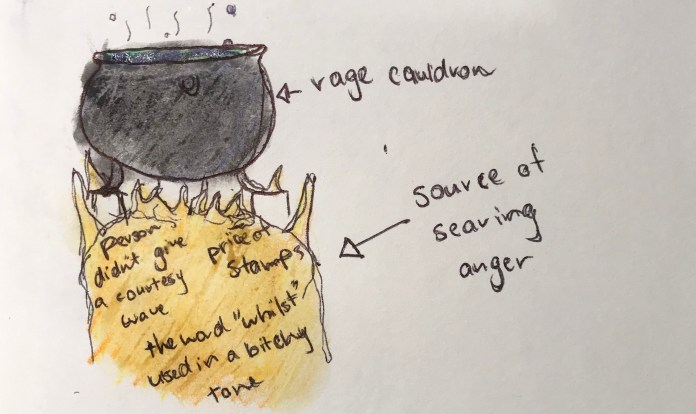 rage cauldron
source of
searing
anger
person
didn't give
a courtesy
wave
price of
stamps
the word "whilst"
used in a bitchy
tone